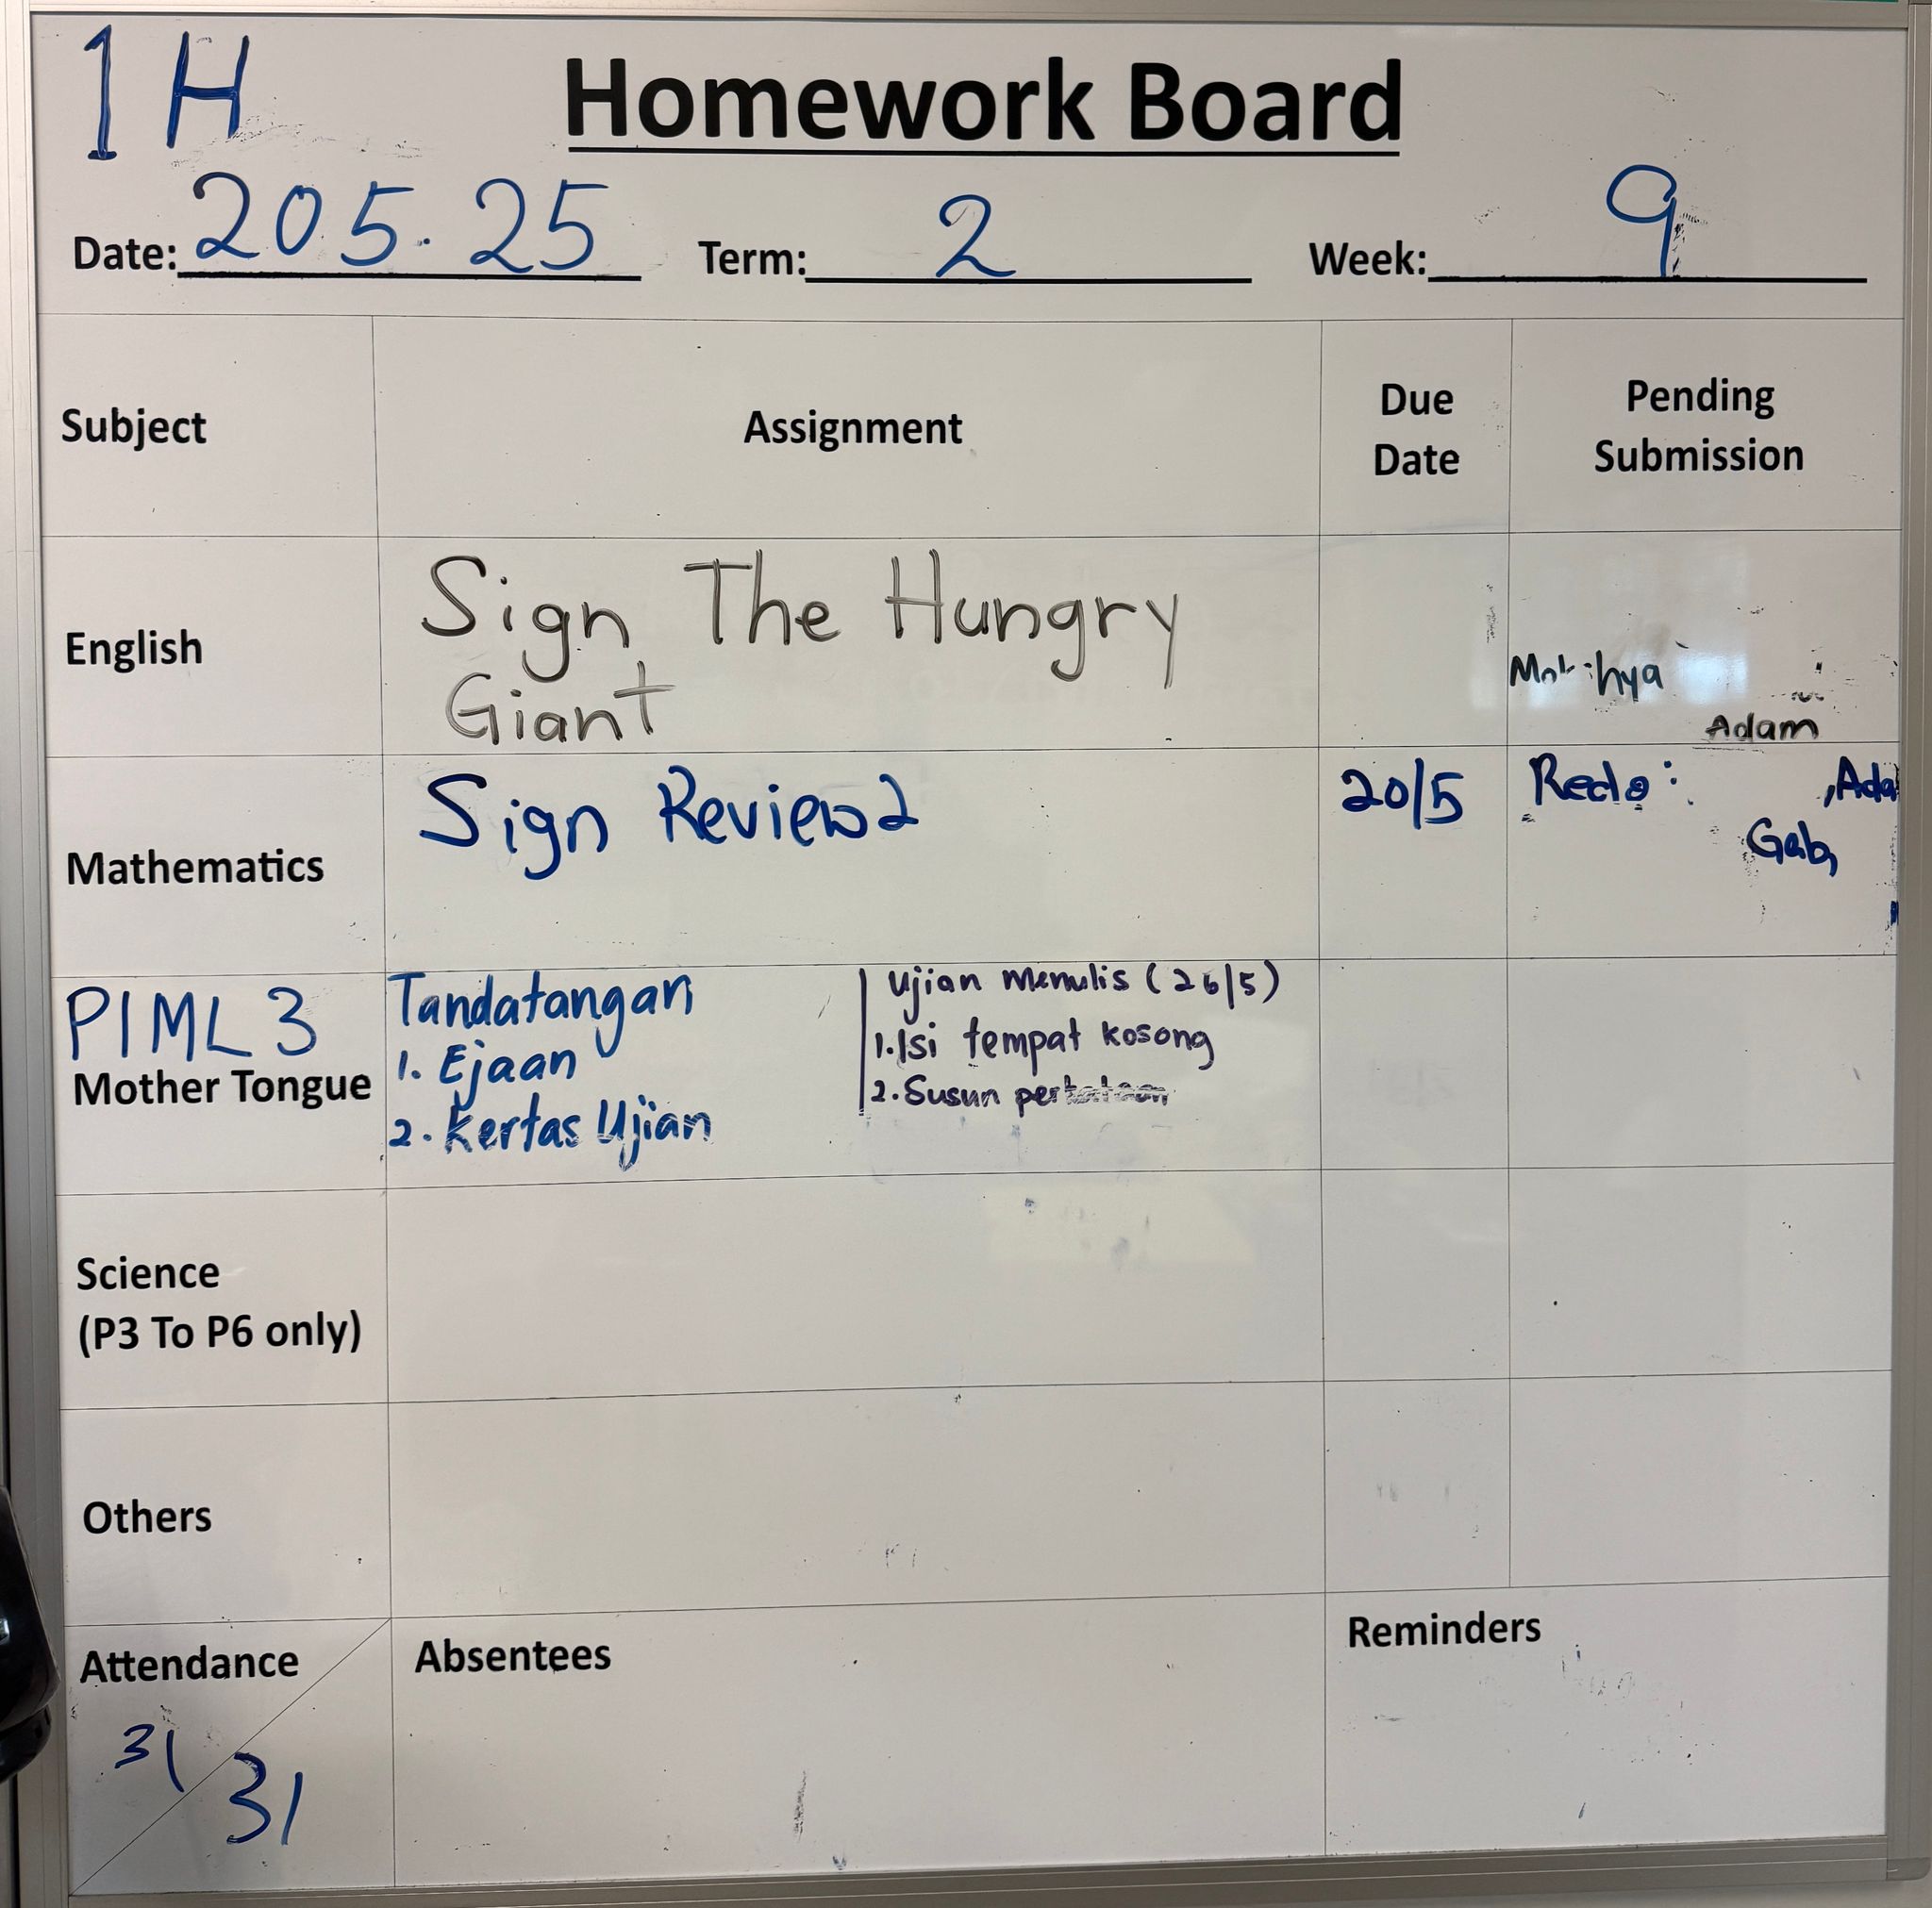 1H
Homework Board
Date: 20 5. 25 Term: 2 Week: 9
Subject Assignment Due Date Pending Submission
English Sign The Hungry
Giant
Adam
Mathematics Sign Review 2 20/5 Redo: , Ada
Gab,
P1ML 3
Mother Tongue
Tandatangan
1. Ejaan
2. Kertas Ujian
Ujian menulis (26/5)
1. Isi tempat kosong
2. Susun perkataan
Science
(P3 To P6 only)
Others
Attendance Absentees Reminders
31
31